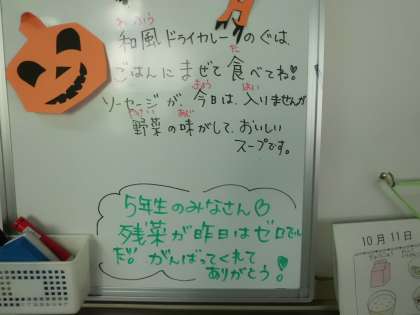 わふう
和風ドライカレーのぐは、
た
ごはんにまぜて食べてね♡
きょう はい
ソーセージが、今日は、入りませんが
やさい あじ
野菜の味がして、おいしい
スープです。
5年生のみなさん♡
残菜が昨日はゼロでし
た。がんばってくれて
ありがとう!
10月11日